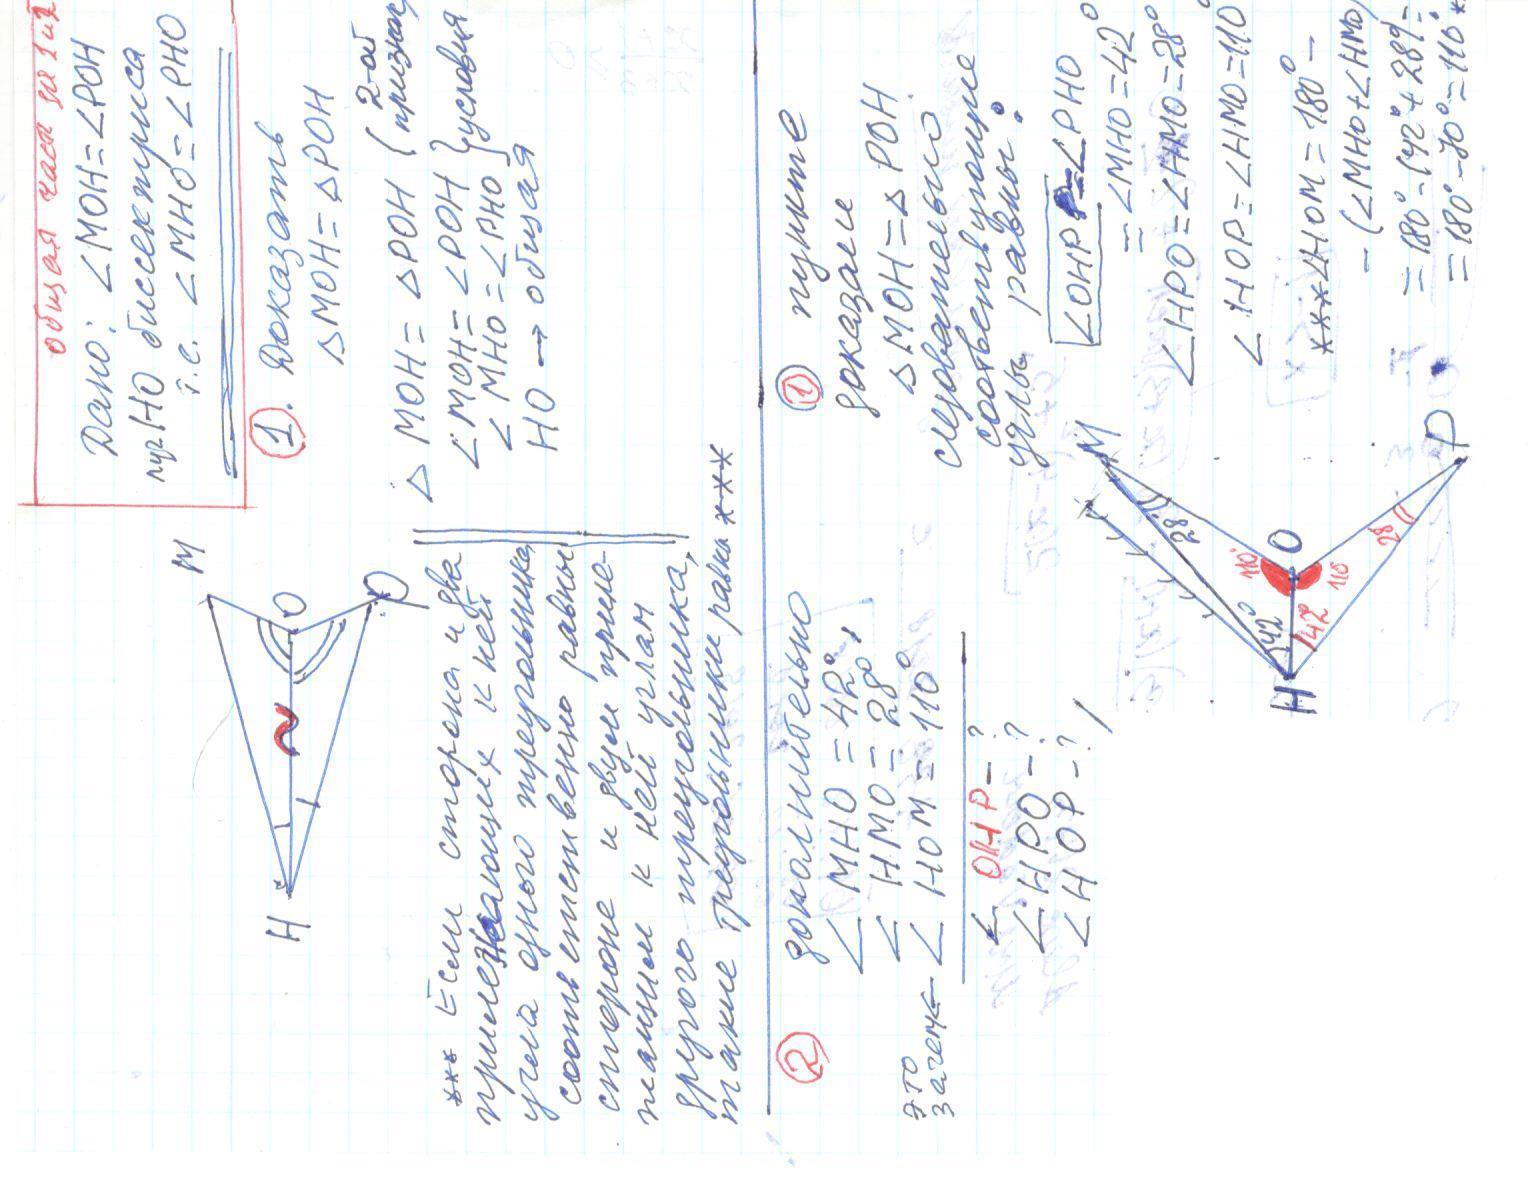 общая часть
Дано: ∠MOH=∠POH
луч HO биссектриса
т.е. ∠MHO=∠PHO
1. Доказать
△MOH=△POH
M
O
P
H
△MOH=△POH (2-ой
∠MOH=∠POH } условия
∠MHO=∠PHO
HO → общая
*** Если сторона и два
прилежающих к ней
угла одного треугольника
соответственно равны
стороне и двум приле-
жащим к ней углам
другого треугольника,
такие треугольники равны ***
2 дополнительно
∠MHO=42°,
∠HMO=28°
это
зачем ← ∠HOM=110°
∠OHP-?
∠HPO-?
∠HOP-?
1 пункте
доказали
△MOH=△POH
следовательно
соответствующие
углы равны:
∠OHP=∠PHO
=∠MHO=42°
∠HPO=∠HMO=28°
∠HOP=∠HMO=110°
***∠HOM=180°-
-(∠MHO+∠HMO)
=180°-(42°+28°)=
=180°-70°=110°
M
28°
110°
O
42°
H
42°
110
28
P